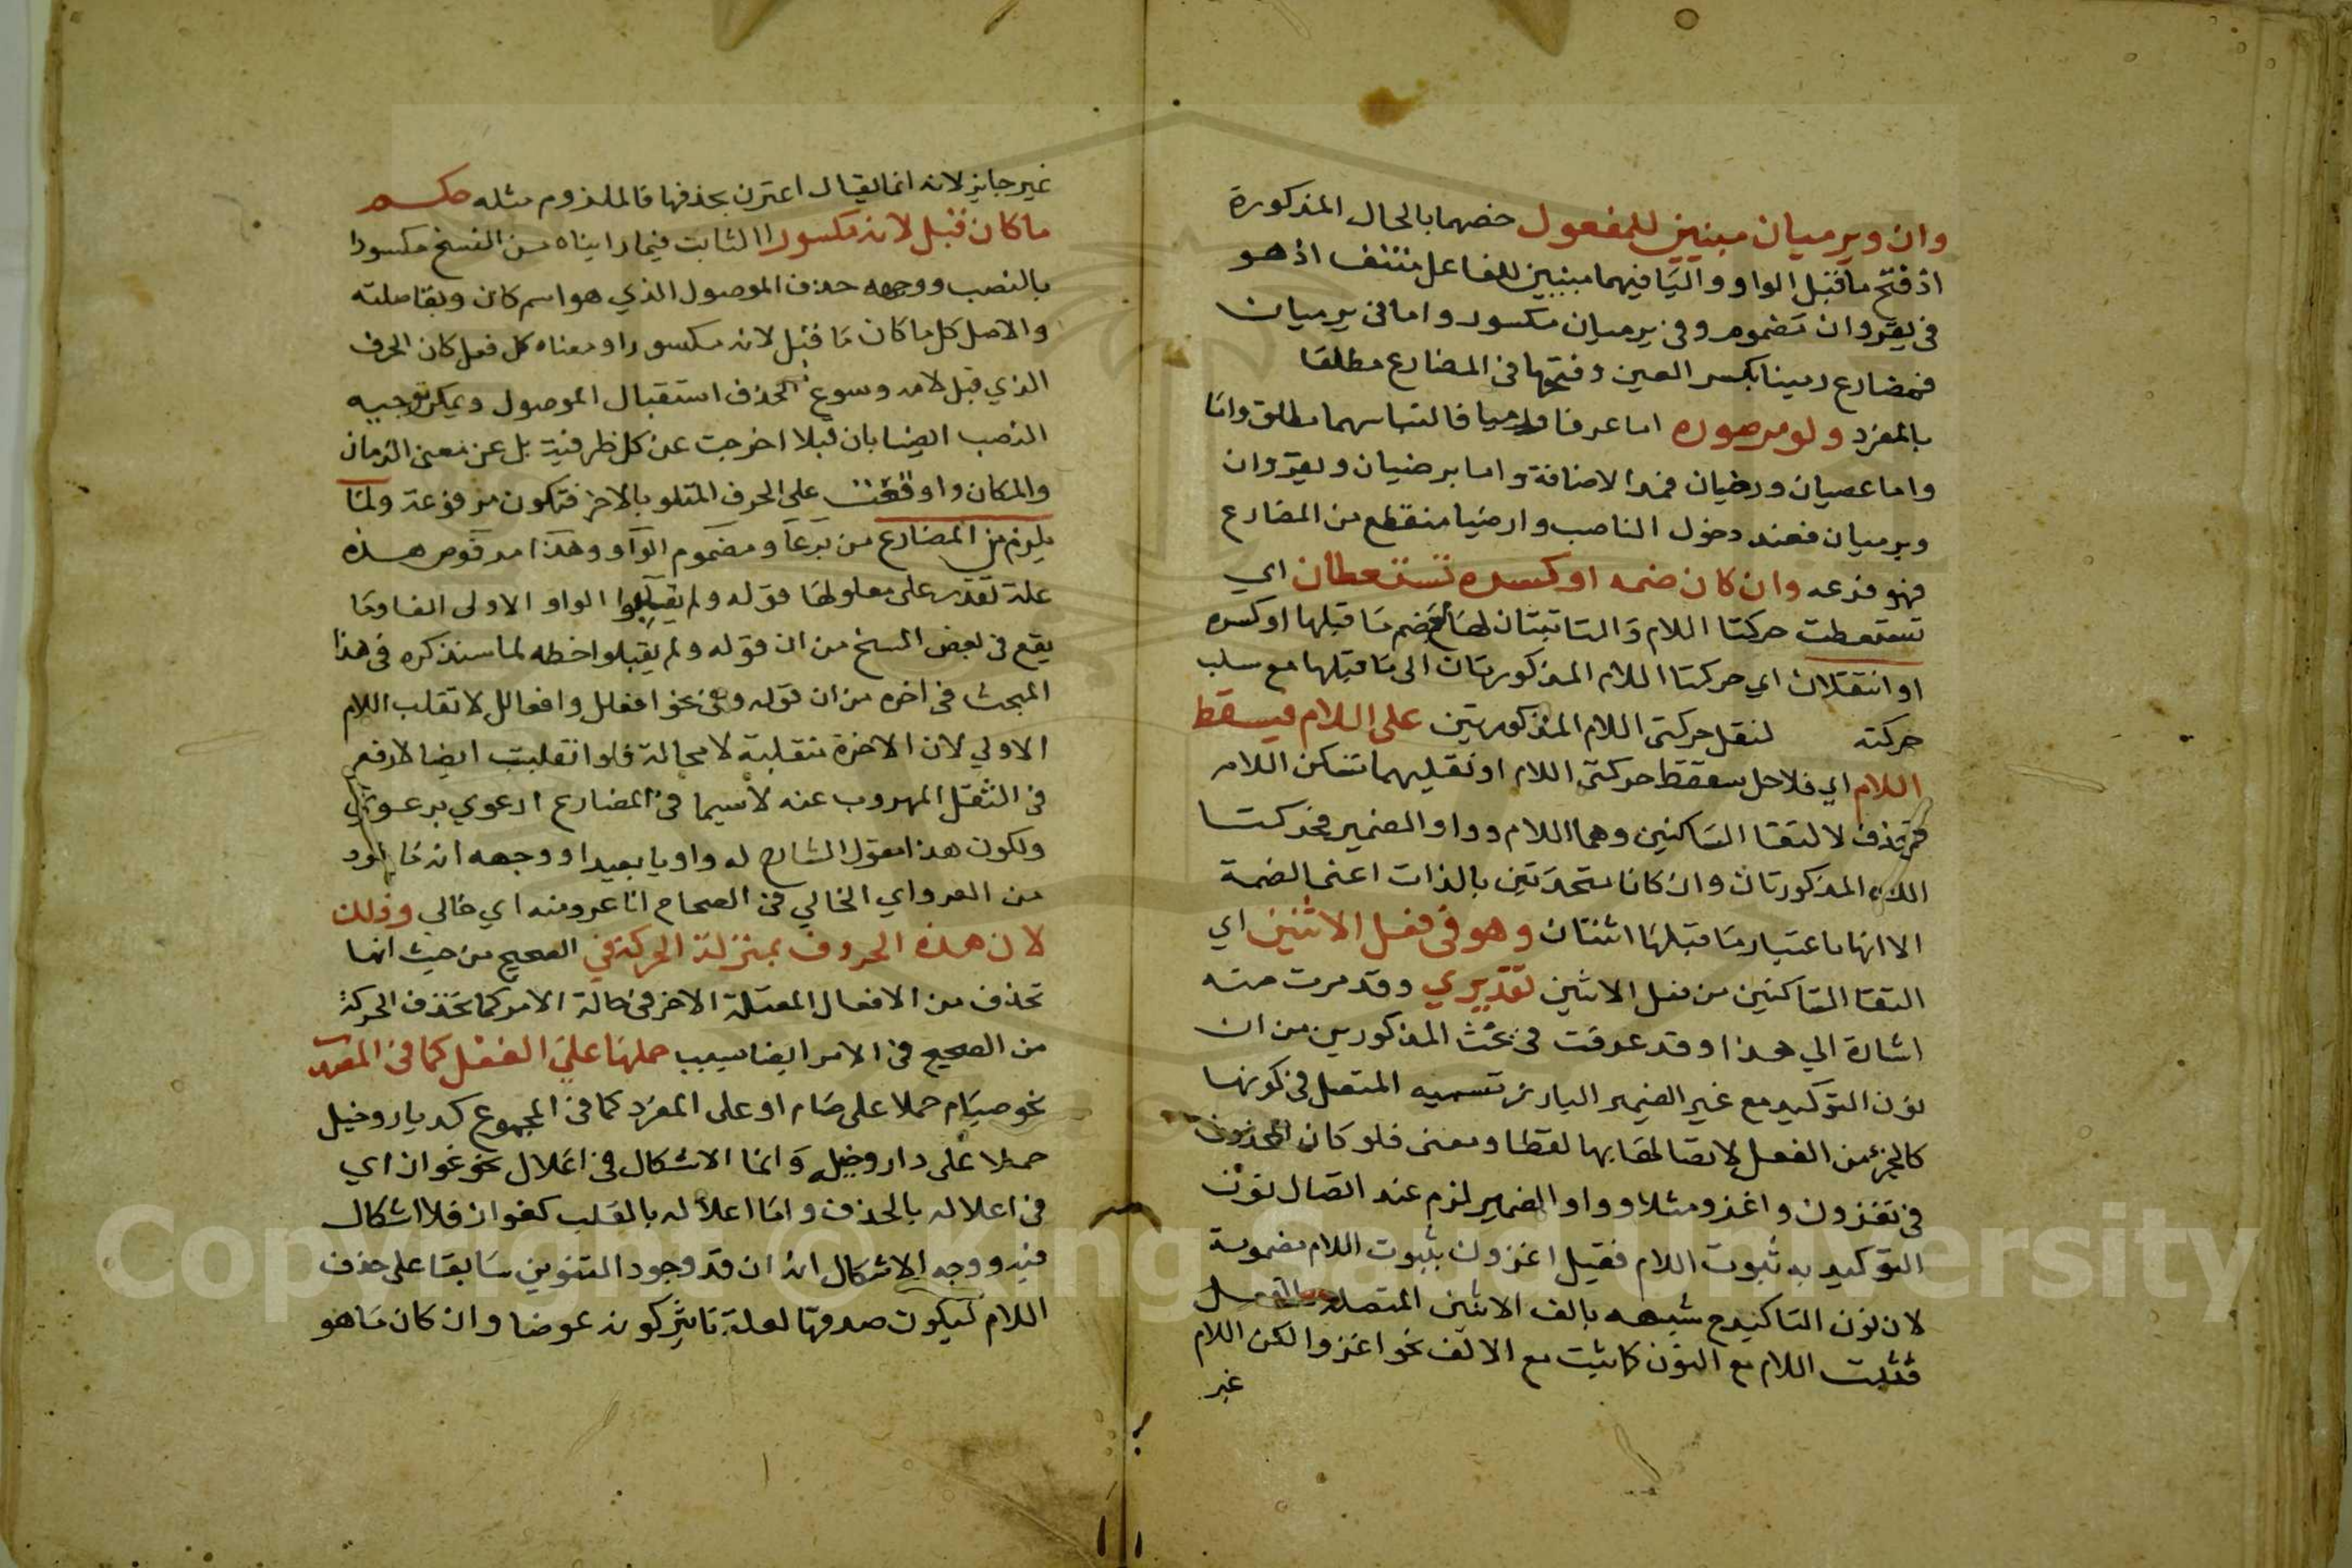 وان ويرميان مبنيين للمفعول خصهما بالحال المذكورة
اذ فتح ما قبل الواو واليا فيهما مبنيين للفاعل منتف اذ هو
في يغزوان مضموم وفي يرميان مكسور واما في يرميان
فمضارع رمينا بكسر العين وفتحها في المضارع مطلقا
بالمفرد ولو مر صوره اما عرفا ورميا فالتباسهما مطلق واما
واما عصيان ورضيان فمذا الاضافة واما يرضيان ويغزوان
ويرميان فعند دخول الناصب وارضيا منقطع من المضارع
فهو فرعه وان كان ضمه او كسره تستقطان اي
تستقطت حركتا اللام والتا تبتان لها ضم ما قبلها او كسره
او انتقلات اي حركتا اللام المذكورتان الى ما قبلها مع سلب
حركته لنقل حركتي اللام المذكورتين على اللام فيسقط
اللام اي فلاجل سقط حركتي اللام او نقليهما تسكن اللام
فتحذف لالتقا الساكنين وهما اللام وواو الضمير فحركتا
اللام المذكورتان وان كانا متحدتين بالذات اعني الضمة
الا انها باعتبار ما قبلها اثنتان وهو في فعل الاثنين اي
التقا الساكنين من فعل الاثنين تقديري وقد مرت منه
اشارة الي هذا وقد عرفت في بحث المذكورين من ان
نون التوكيد مع غير الضمير البارز تسميه المتصل في كونها
كالجزء من الفعل لاتصالها بها لفظا ومعنى فلو كان المحذوف
في تغزون واغزو مثلا وواو الضمير لزم عند اتصال نون
التوكيد به ثبوت اللام فقيل اغزون بثبوت اللام مضمومة
لان نون التاكيد مع شبهه بالف الاثنين المتصلة
فثبت اللام مع النون كما يثبت مع الالف نحو اغزوا لكن اللام
غير
غير جايز لانه انما يقال اغزن بحذفها فالملزوم مثله حكم
ما كان قبل لامه مكسورا الثابت فيما رايناه من النسخ مكسورا
بالنصب ووجهه حذف الموصول الذي هو اسم كان وبقا صلته
والاصل كل ما كان ما قبل لامه مكسورا ومعناه كل فعل كان الحرف
الذي قبل لامه وسوغ الحذف استقبال الموصول ويمكن توجيه
النصب ايضا بان قبلا اخرجت عن كل ظرفية بل عن معنى الزمان
والمكان واوقعت على الحرف المتلو بالاخر فتكون مرفوعة ولئا
يلزم في المضارع من يرعا ومضموم الواو وهذا مرفوض هذه
علة تقدمت على معلولها قوله ولم يقلبوا الواو الاولى الفا وما
يقع في بعض النسخ من ان قوله ولم يقبلوا خطه لما سنذكره في هذا
المبحث في اخره من ان قوله وفي نحو افعلل وافعالل لا تقلب اللام
الاولي لان الاخرة منقلبة لا محالة فلو انقلبت ايضا لا رفع
في الثقل المهروب عنه لا سيما في المضارع ارعوي يرعوي
ولكون هذا مقول الشارح له واو يا بعيدا ووجهه انه ما خود
من العرو اي الخالي في الصحاح انا عرو منه اي خالي وذلك
لان هذه الحروف بمنزلة الحركة في الصحيح من حيث انها
تحذف من الافعال المعتلة الاخر في حالة الامر كما تحذف الحركة
من الصحيح في الامر ايضا سبب حملها على الفعل كما في المفرد
نحو صيام حملا على صام او على المفرد كما في المجموع كديار وخيل
حملا على دار وخيل وانما الاشكال في اعلال نحو غوان اي
في اعلاله بالحذف واما اعلاله بالقلب كغوان فلا اشكال
فيه ووجه الاشكال انه ان قد وجود التنوين سابقا على حذف
اللام ليكون صدقها لعلة تاثير كونه عوضا وان كان ما هو
Copyright © King Saud University